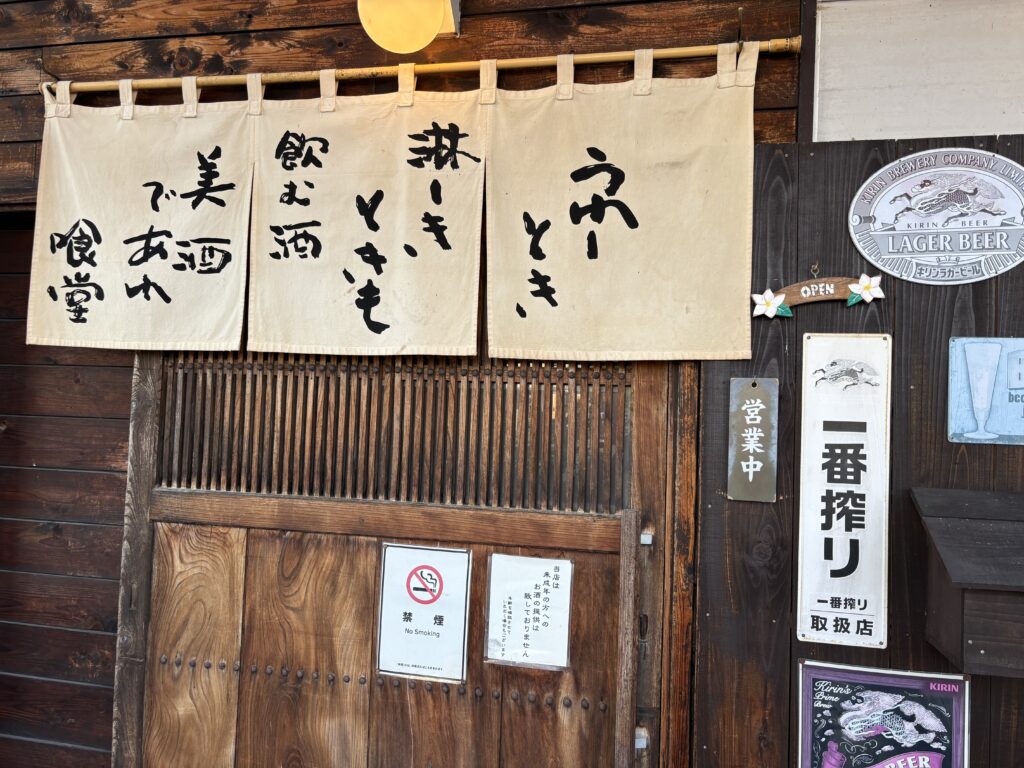 うれし
とき
淋しき
ときも
飲む酒
美酒
であれ
喰堂
KIRIN BREWERY COMPANY LIMI
KIRIN BEER
LAGER BEER
キリンラガービール
OPEN
営業中
一番搾り
一番搾り
取扱店
禁煙
No Smoking
当店は
未成年の方への
お酒の提供は
致しておりません
年齢を確認させて
いただく場合もございます
Kirin's
Prime
Brew
KIRIN
BEER